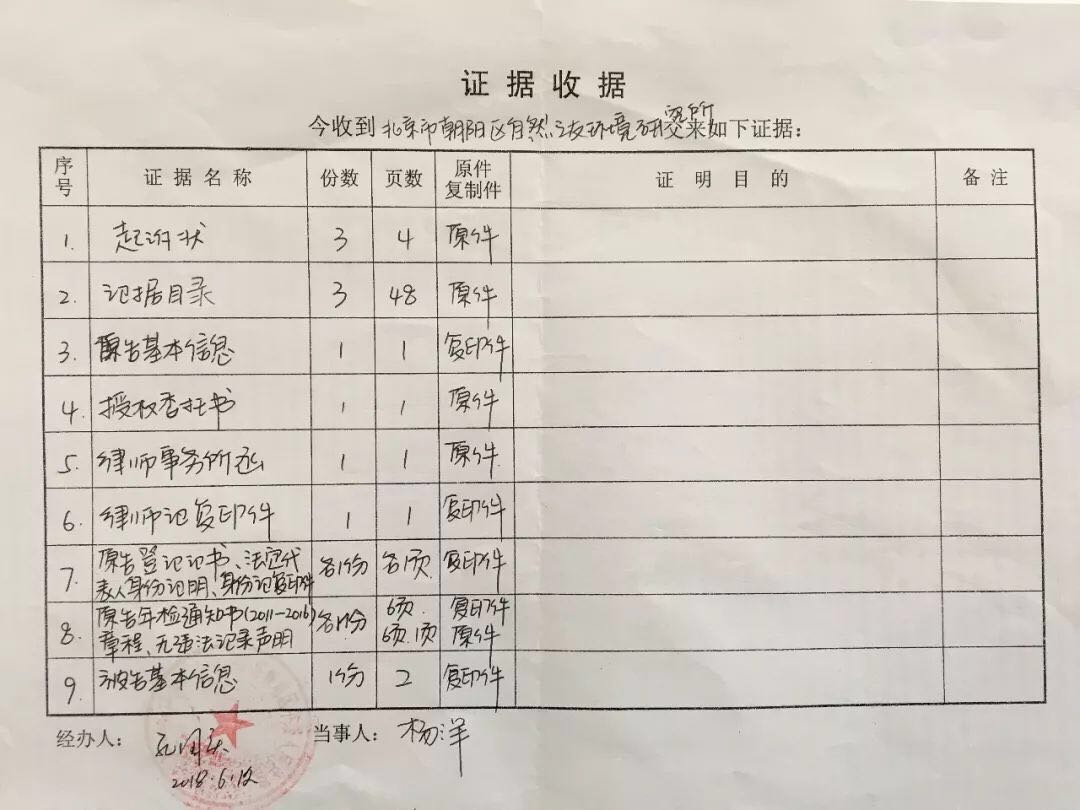 证据收据
今收到北京市朝阳区自然之友环境研究所交来如下证据：
序号 证据名称 份数 页数 原件复制件 证明目的 备注
1. 起诉状 3 4 原件
2. 证据目录 3 48 原件
3. 原告基本信息 1 1 复印件
4. 授权委托书 1 1 原件
5. 律师事务所函 1 1 原件
6. 律师证复印件 1 1 复印件
7. 原告登记证书、法定代表人身份证明、身份证复印件 各1份 各1页 复印件
8. 原告年检通知书(2011-2016) 章程、无违法记录声明 各1份 6页 6页.1页 复印件 原件
9. 被告基本信息 1份 2 复印件
经办人： 当事人：杨洋
2018.6.12